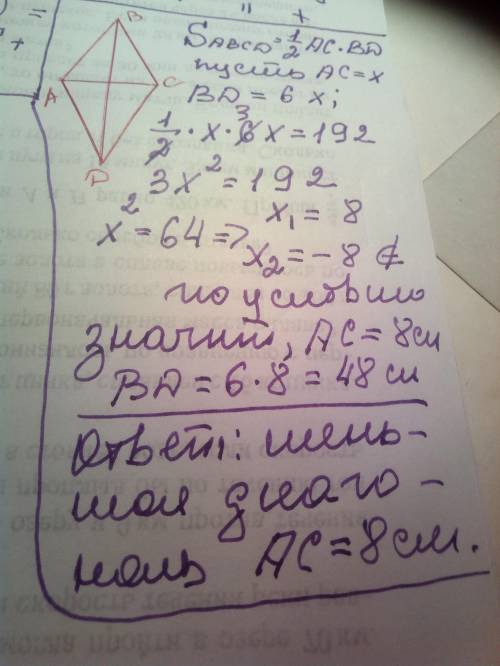 B
A
C
D
S ABCD = 1/2 AC · BD
пусть AC = x
BD = 6x;
1/2 · x · 6x = 192
3
3x² = 192
x² = 64 => x₁ = 8
x₂ = -8 ∉
по условию
значит, AC = 8 см
BD = 6·8 = 48 см
Ответ: мень-
шая диаго-
наль AC = 8 см.